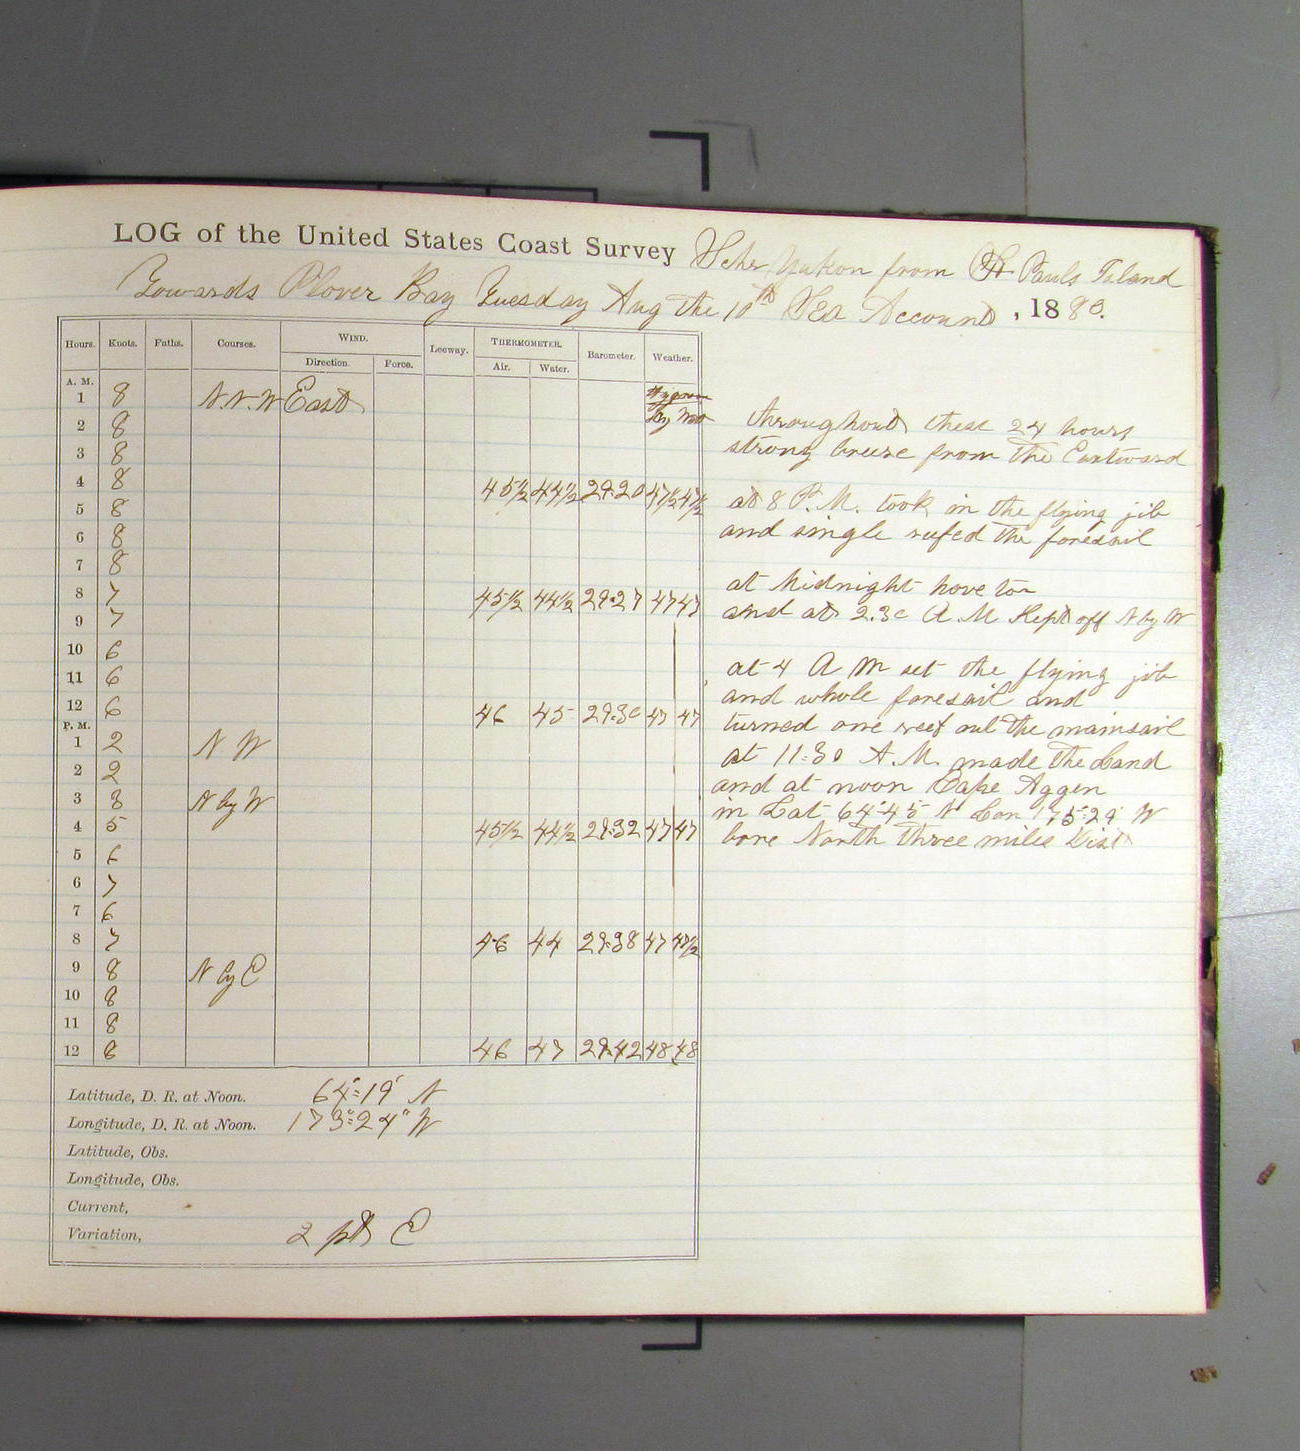 LOG of the United States Coast Survey Scher Yukon from St Pauls Island
Towards Plover Bay Tuesday Aug the 10th Sea Account, 1880.
Hours. Knots. Faths. Courses. WIND. Leeway. THERMOMETER. Barometer. Weather.
Direction. Force. Air. Water.
A. M.
1 8 N.N.W East Hygrom
Dry Wet
2 8
3 8
4 8 45½ 44½ 29.20 47½ 47½
5 8
6 8
7 8
8 7 45½ 44½ 29.27 47 47
9 7
10 6
11 6
12 6 46 45 29.30 47 47
P. M.
1 2 N W
2 2
3 3 N by W
4 5 45½ 44½ 29.32 47 47
5 6
6 7
7 6
8 7 46 44 29.38 47 47½
9 8 N by E
10 8
11 8
12 8 46 47 29.42 48 48
Latitude, D. R. at Noon. 64°=19' N
Longitude, D. R. at Noon. 173°=24" W
Latitude, Obs.
Longitude, Obs.
Current,
Variation, 2 pts E
throughout these 24 hours
strong breeze from the Eastward
at 8 P.M. took in the flying jib
and single refed the foresail
at Midnight hove too
and at 2.30 A.M Kept off N by W
at 4 A M set the flying jib
and whole foresail and
turned one reef out the mainsail
at 11=30 A.M. made the Land
and at noon Cape Aggen
in Lat 64°45 N Lon 175=29' W
bore North three miles Dist